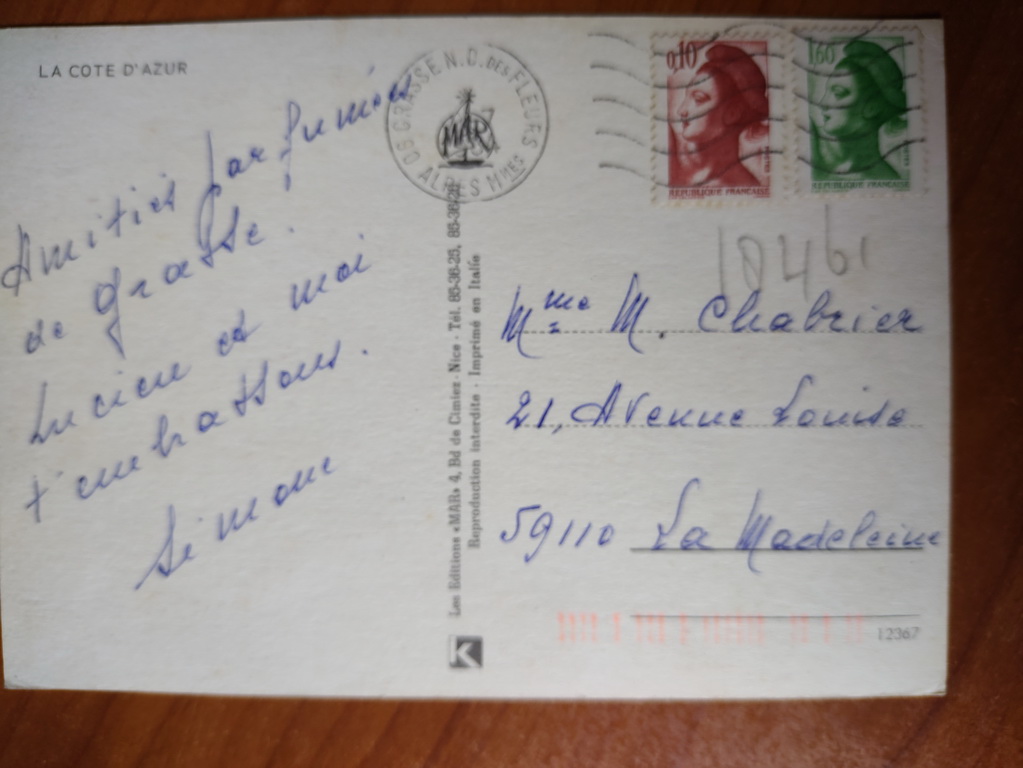 LA COTE D'AZUR
Amitiés parfumées
de Grasse.
Lucien et moi
t'embrassons.
Simone
06 GRASSE N.D. DES FLEURS
ALPES MMES
MAR
Les Editions «MAR» 4, Bd de Cimiez - Nice - Tél. 85-36-25, 85-36-26
Reproduction interdite - Imprimé en Italie
K
0,10
REPUBLIQUE FRANÇAISE
1,60
REPUBLIQUE FRANÇAISE
Mme M. Chabrier
21, Avenue Louise
59110 La Madeleine
12367